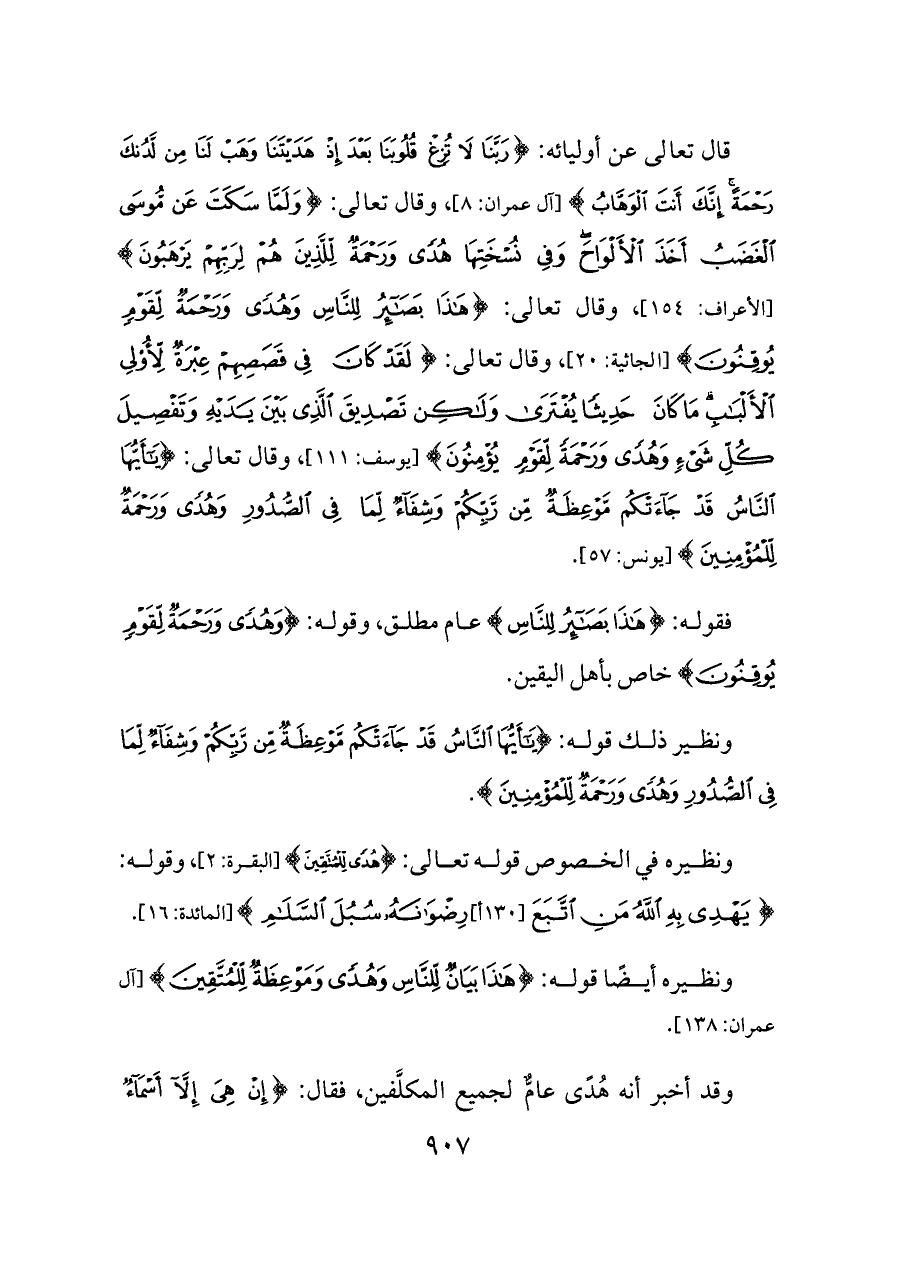 قال تعالى عن أوليائه: ﴿رَبَّنَا لَا تُزِغْ قُلُوبَنَا بَعْدَ إِذْ هَدَيْتَنَا وَهَبْ لَنَا مِن لَّدُنكَ
رَحْمَةً ۚ إِنَّكَ أَنتَ ٱلْوَهَّابُ ﴾ [آل عمران: ٨]، وقال تعالى: ﴿ وَلَمَّا سَكَتَ عَن مُّوسَى
ٱلْغَضَبُ أَخَذَ ٱلْأَلْوَاحَ ۖ وَفِي نُسْخَتِهَا هُدًى وَرَحْمَةٌ لِّلَّذِينَ هُمْ لِرَبِّهِمْ يَرْهَبُونَ﴾
[الأعراف: ١٥٤]، وقال تعالى: ﴿هَٰذَا بَصَٰٓئِرُ لِلنَّاسِ وَهُدًى وَرَحْمَةٌ لِّقَوْمٍ
يُوقِنُونَ﴾ [الجاثية: ٢٠]، وقال تعالى: ﴿ لَقَدْ كَانَ فِي قَصَصِهِمْ عِبْرَةٌ لِّأُوْلِي
ٱلْأَلْبَٰبِ ۗ مَا كَانَ حَدِيثًا يُفْتَرَىٰ وَلَٰكِن تَصْدِيقَ ٱلَّذِي بَيْنَ يَدَيْهِ وَتَفْصِيلَ
كُلِّ شَيْءٍ وَهُدًى وَرَحْمَةً لِّقَوْمٍ يُؤْمِنُونَ﴾ [يوسف: ١١١]، وقال تعالى: ﴿يَٰٓأَيُّهَا
ٱلنَّاسُ قَدْ جَآءَتْكُم مَّوْعِظَةٌ مِّن رَّبِّكُمْ وَشِفَآءٌ لِّمَا فِي ٱلصُّدُورِ وَهُدًى وَرَحْمَةٌ
لِّلْمُؤْمِنِينَ ﴾ [يونس: ٥٧].
فقوله: ﴿هَٰذَا بَصَٰٓئِرُ لِلنَّاسِ﴾ عام مطلق، وقوله: ﴿وَهُدًى وَرَحْمَةٌ لِّقَوْمٍ
يُوقِنُونَ﴾ خاص بأهل اليقين.
ونظير ذلك قوله: ﴿يَٰٓأَيُّهَا ٱلنَّاسُ قَدْ جَآءَتْكُم مَّوْعِظَةٌ مِّن رَّبِّكُمْ وَشِفَآءٌ لِّمَا
فِي ٱلصُّدُورِ وَهُدًى وَرَحْمَةٌ لِّلْمُؤْمِنِينَ ﴾.
ونظيره في الخصوص قوله تعالى: ﴿هُدًى لِّلْمُتَّقِينَ﴾ [البقرة: ٢]، وقوله:
﴿ يَهْدِي بِهِ ٱللَّهُ مَنِ ٱتَّبَعَ [١٣٠أ] رِضْوَٰنَهُۥ سُبُلَ ٱلسَّلَٰمِ ﴾ [المائدة: ١٦].
ونظيره أيضًا قوله: ﴿هَٰذَا بَيَانٌ لِّلنَّاسِ وَهُدًى وَمَوْعِظَةٌ لِّلْمُتَّقِينَ﴾ [آل
عمران: ١٣٨].
وقد أخبر أنه هُدًى عامٌّ لجميع المكلَّفين، فقال: ﴿ إِنْ هِيَ إِلَّآ أَسْمَآءٌ
٩٠٧